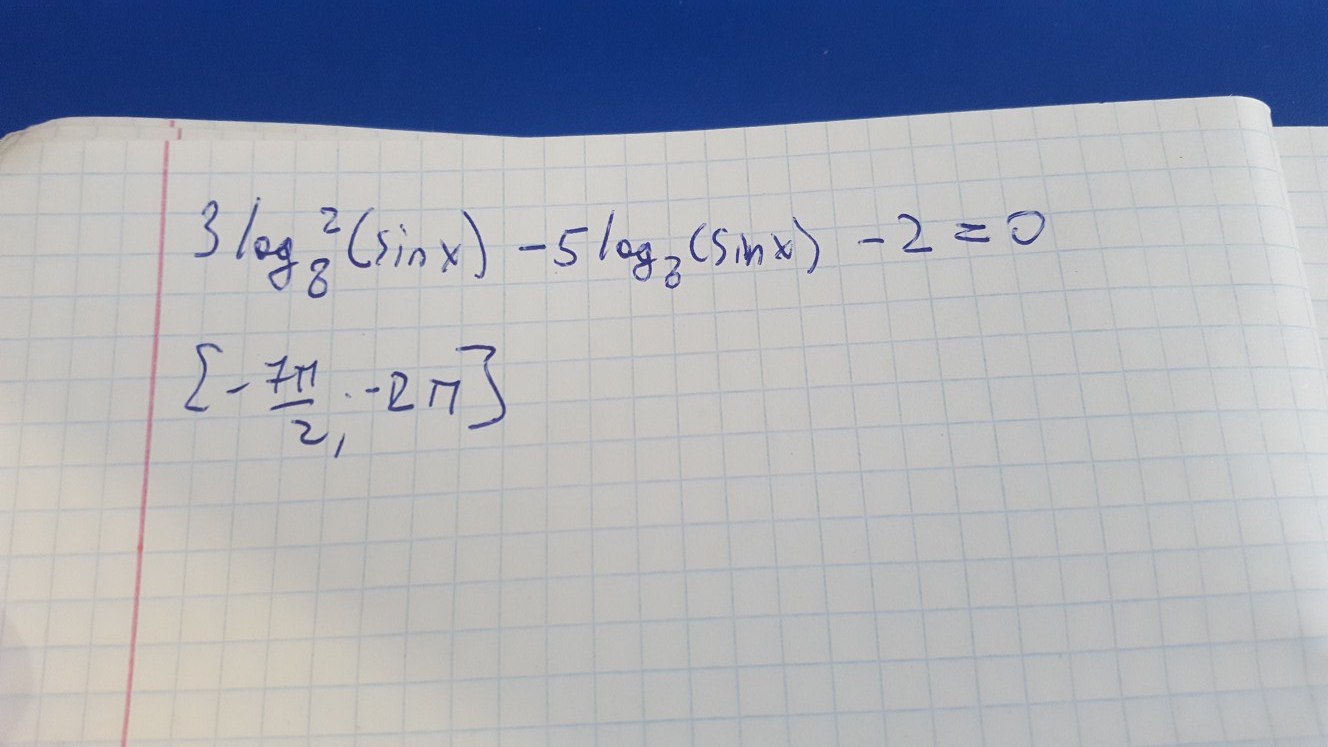 3 log₈²(sin x) - 5 log₈(sin x) - 2 = 0
[-7π/2; -2π]